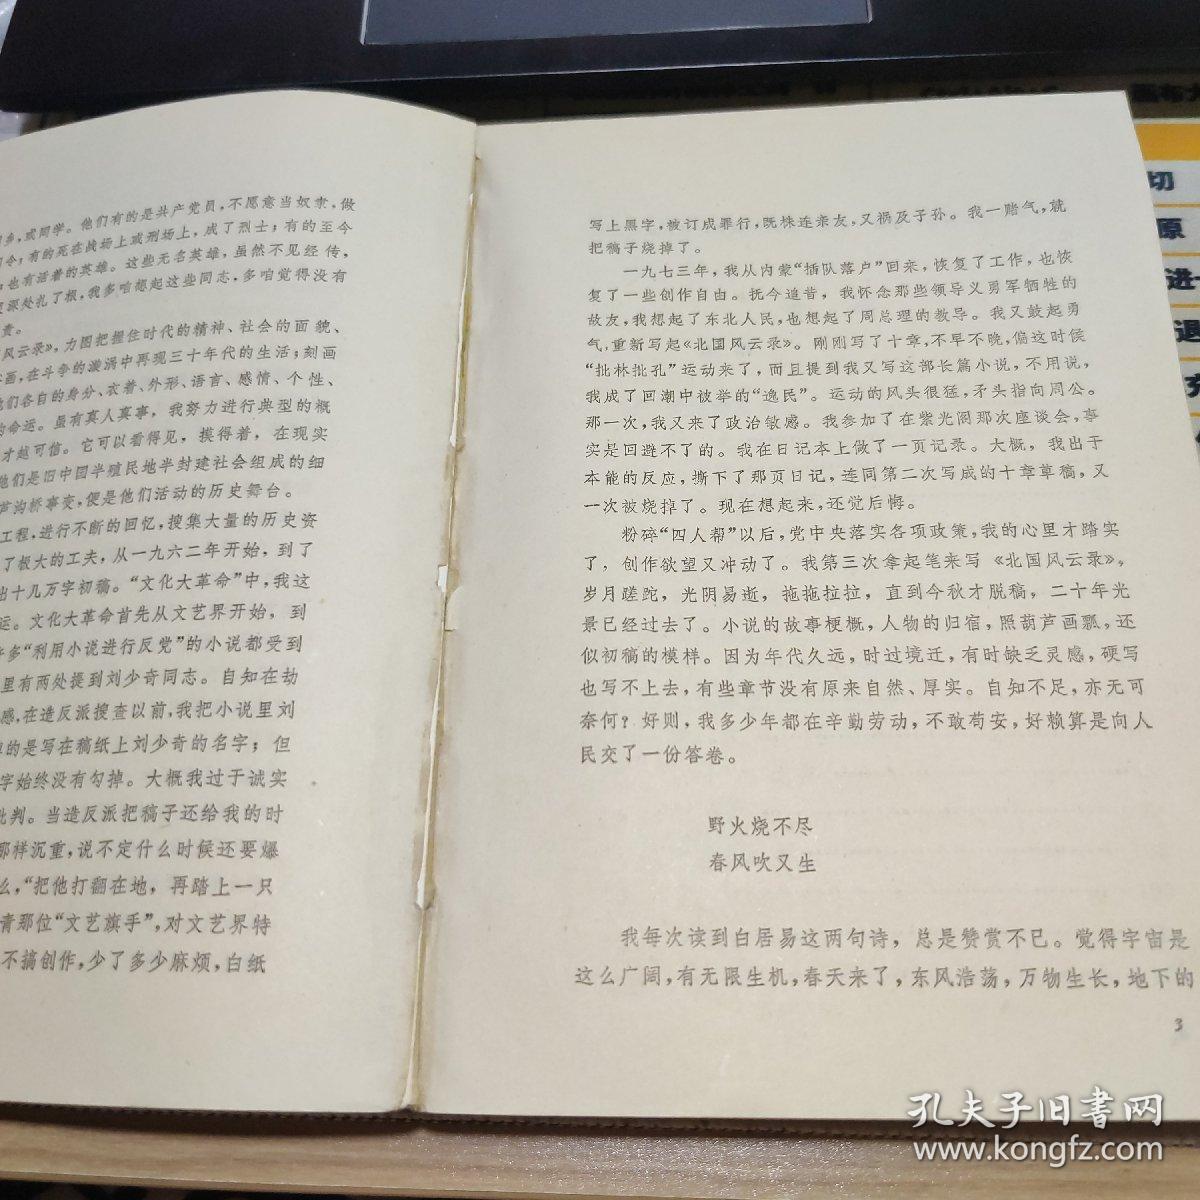 乡,或同学。他们有的是共产党员,不愿意当奴隶,做
令;有的死在战场上或刑场上,成了烈士;有的至今
,也有活着的英雄。这些无名英雄,虽然不见经传,
深处扎了根,我多咱想起这些同志,多咱觉得没有
责。
风云录》,力图把握住时代的精神、社会的面貌、
画,在斗争的漩涡中再现三十年代的生活;刻画
们各自的身分、衣着、外形、语言、感情、个性、
的命运。虽有真人真事,我努力进行典型的概
才越可信。它可以看得见,摸得着,在现实
他们是旧中国半殖民地半封建社会组成的细
芦沟桥事变,便是他们活动的历史舞台。
工程,进行不断的回忆,搜集大量的历史资
了极大的工夫,从一九六二年开始,到了
出十几万字初稿。“文化大革命”中,我这
运。文化大革命首先从文艺界开始,到
多“利用小说进行反党”的小说都受到
里有两处提到刘少奇同志。自知在劫
感,在造反派搜查以前,我把小说里刘
的是写在稿纸上刘少奇的名字;但
字始终没有勾掉。大概我过于诚实
批判。当造反派把稿子还给我的时
那样沉重,说不定什么时候还要爆
么,“把他打翻在地,再踏上一只
青那位“文艺旗手”,对文艺界特
不搞创作,少了多少麻烦,白纸
写上黑字,被订成罪行,既株连亲友,又祸及子孙。我一赌气,就
把稿子烧掉了。
一九七三年,我从内蒙“插队落户”回来,恢复了工作,也恢
复了一些创作自由。抚今追昔,我怀念那些领导义勇军牺牲的
故友,我想起了东北人民,也想起了周总理的教导。我又鼓起勇
气,重新写起《北国风云录》。刚刚写了十章,不早不晚,偏这时候
“批林批孔”运动来了,而且提到我又写这部长篇小说,不用说,
我成了回潮中被举的“逸民”。运动的风头很猛,矛头指向周公。
那一次,我又来了政治敏感。我参加了在紫光阁那次座谈会,事
实是回避不了的。我在日记本上做了一页记录。大概,我出于
本能的反应,撕下了那页日记,连同第二次写成的十章草稿,又
一次被烧掉了。现在想起来,还觉后悔。
粉碎“四人帮”以后,党中央落实各项政策,我的心里才踏实
了,创作欲望又冲动了。我第三次拿起笔来写《北国风云录》,
岁月蹉跎,光阴易逝,拖拖拉拉,直到今秋才脱稿,二十年光
景已经过去了。小说的故事梗概,人物的归宿,照葫芦画瓢,还
似初稿的模样。因为年代久远,时过境迁,有时缺乏灵感,硬写
也写不上去,有些章节没有原来自然、厚实。自知不足,亦无可
奈何?好则,我多少年都在辛勤劳动,不敢苟安,好赖算是向人
民交了一份答卷。
野火烧不尽
春风吹又生
我每次读到白居易这两句诗,总是赞赏不已。觉得宇宙是
这么广阔,有无限生机,春天来了,东风浩荡,万物生长,地下的
3
切
原
进
退
孔夫子旧书网
www.kongfz.com